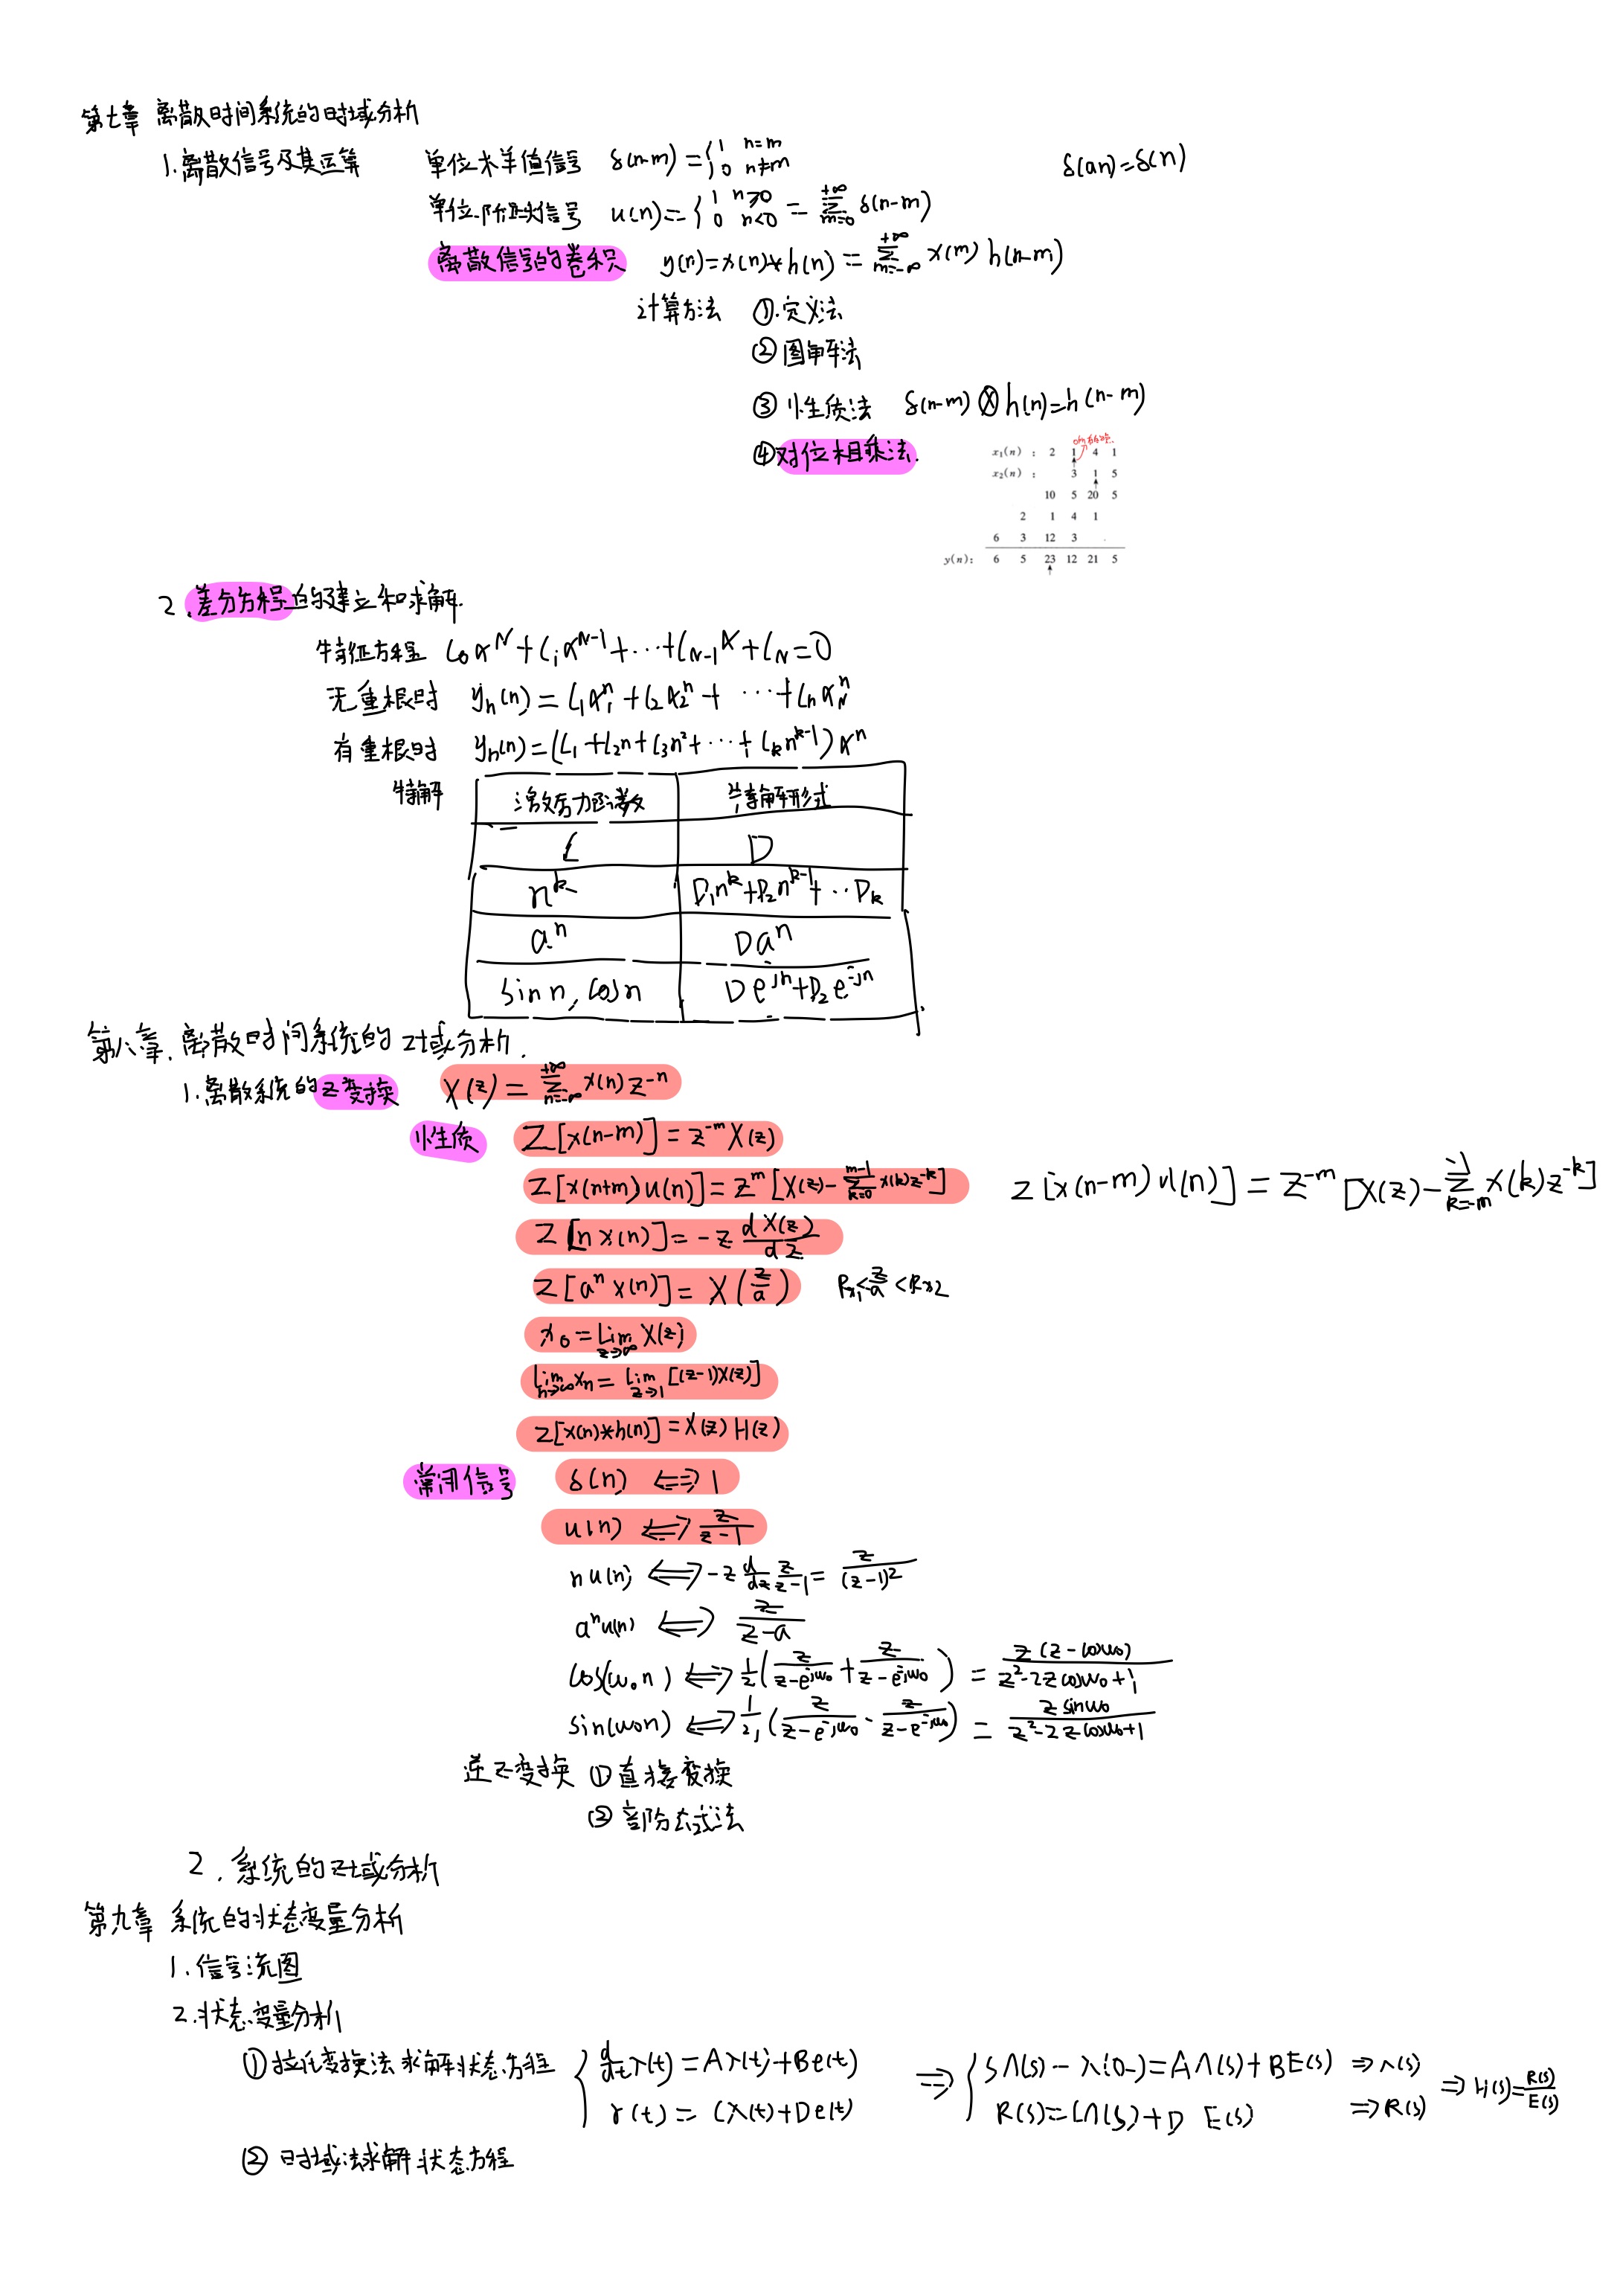 第七章 离散时间系统的时域分析
1.离散信号及其运算 单位样值信号 δ(n-m)={1 n=m 0 n≠m δ(an)=δ(n)
单位阶跃信号 u(n)={1 n≥0 0 n<0 = Σ_{m=0}^{+∞} δ(n-m)
离散信号的卷积 y(n)=x(n)*h(n)=Σ_{m=-∞}^{+∞} x(m)h(n-m)
计算方法 ①.定义法
②图解法
③性质法 δ(n-m)⊗h(n)=h(n-m)
④对位相乘法.
x₁(n) : 2 1↑ 4 1
x₂(n) : 3 1↑ 5
10 5 20 5
2 1 4 1
6 3 12 3
y(n): 6 5 23↑ 12 21 5
2.差分方程的建立和求解.
特征方程 C₀α^N+C₁α^{N-1}+⋯+C_{N-1}α+C_N=0
无重根时 y_h(n)=C₁α₁^n+C₂α₂^n+⋯+C_nα_N^n
有重根时 y_h(n)=(C₁+C₂n+C₃n²+⋯+C_kn^{k-1})α^n
特解 激励函数 特解形式
C D
n^k D₁n^k+D₂n^{k-1}+⋯D_k
a^n Da^n
sin n, cos n De^{jn}+D₂e^{-jn}
第八章.离散时间系统的z域分析.
1.离散系统的z变换 X(z)=Σ_{n=-∞}^{+∞} x(n)z^{-n}
性质 Z[x(n-m)]=z^{-m}X(z)
Z[x(n+m)u(n)]=z^m[X(z)-Σ_{k=0}^{m-1} x(k)z^{-k}] Z[x(n-m)u(n)]=z^{-m}[X(z)-Σ_{k=-m}^{-1} x(k)z^{-k}]
Z[nx(n)]=-z dX(z)/dz
Z[a^n x(n)]=X(z/a) R_{x1}<z/a<R_{x2}
x₀=lim_{z→∞} X(z)
lim_{n→∞} x_n=lim_{z→1}[(z-1)X(z)]
Z[x(n)*h(n)]=X(z)H(z)
常用信号 δ(n) ⟺ 1
u(n) ⟺ z/(z-1)
nu(n) ⟺ -z d/dz z/(z-1) = z/(z-1)²
a^n u(n) ⟺ z/(z-a)
cos(ω₀n) ⟺ 1/2(z/(z-e^{jω₀})+z/(z-e^{-jω₀})) = z(z-cosω₀)/(z²-2zcosω₀+1)
sin(ω₀n) ⟺ 1/2j(z/(z-e^{jω₀})-z/(z-e^{-jω₀})) = z sinω₀/(z²-2zcosω₀+1)
逆Z变换 ①直接变换
②部分式法
2.系统的z域分析
第九章 系统的状态变量分析
1.信号流图
2.状态变量分析
①拉氏变换法求解状态方程 {d/dt λ(t)=Aλ(t)+Be(t) ⇒ {SΛ(s)-λ(0-)=AΛ(s)+BE(s) ⇒Λ(s) ⇒H(s)=R(s)/E(s)
r(t)=Cλ(t)+De(t) R(s)=CΛ(s)+D E(s) ⇒R(s)
②时域法求解状态方程